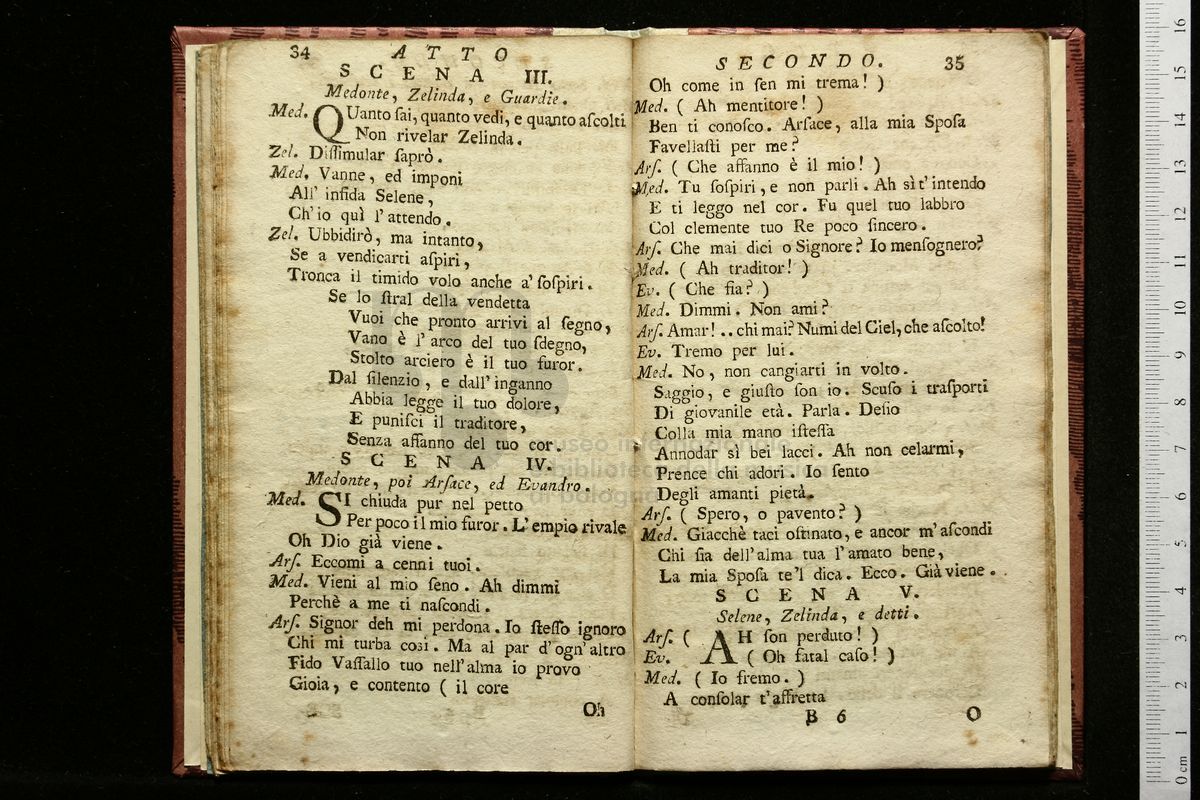 34 ATTO
SCENA III.
Medonte, Zelinda, e Guardie.
Med. QUanto ſai, quanto vedi, e quanto aſcolti
Non rivelar Zelinda.
Zel. Diſſimular ſaprò.
Med. Vanne, ed imponi
All' infida Selene,
Ch'io quì l'attendo.
Zel. Ubbidirò, ma intanto,
Se a vendicarti aſpiri,
Tronca il timido volo anche a' ſoſpiri.
Se lo ſtral della vendetta
Vuoi che pronto arrivi al ſegno,
Vano è l'arco del tuo ſdegno,
Stolto arciero è il tuo furor.
Dal ſilenzio, e dall'inganno
Abbia legge il tuo dolore,
E puniſci il traditore,
Senza affanno del tuo cor.
SCENA IV.
Medonte, poi Arſace, ed Evandro.
Med. SI chiuda pur nel petto
Per poco il mio furor. L'empio rivale
Oh Dio già viene.
Arſ. Eccomi a cenni tuoi.
Med. Vieni al mio ſeno. Ah dimmi
Perchè a me ti naſcondi.
Arſ. Signor deh mi perdona. Io ſteſſo ignoro
Chi mi turba così. Ma al par d'ogn'altro
Fido Vaſſallo tuo nell'alma io provo
Gioia, e contento ( il core
Oh
SECONDO. 35
Oh come in ſen mi trema! )
Med. ( Ah mentitore! )
Ben ti conoſco. Arſace, alla mia Spoſa
Favellaſti per me?
Arſ. ( Che affanno è il mio! )
Med. Tu ſoſpiri, e non parli. Ah sì t'intendo
E ti leggo nel cor. Fu quel tuo labbro
Col clemente tuo Re poco ſincero.
Arſ. Che mai dici o Signore? Io menſognero?
Med. ( Ah traditor! )
Ev. ( Che fia? )
Med. Dimmi. Non ami?
Arſ. Amar!.. chi mai? Numi del Ciel, che aſcolto!
Ev. Tremo per lui.
Med. No, non cangiarti in volto.
Saggio, e giuſto ſon io. Scuſo i traſporti
Di giovanile età. Parla. Deſio
Colla mia mano iſteſſa
Annodar sì bei lacci. Ah non celarmi,
Prence chi adori. Io ſento
Degli amanti pietà.
Arſ. ( Spero, o pavento? )
Med. Giacchè taci oſtinato, e ancor m'aſcondi
Chi ſia dell'alma tua l'amato bene,
La mia Spoſa te'l dica. Ecco. Già viene.
SCENA V.
Selene, Zelinda, e detti.
Arſ. ( AH ſon perduto! )
Ev. ( Oh fatal caſo! )
Med. ( Io fremo. )
A conſolar t'affretta
B 6 O
museo internazionale
e biblioteca della musica
di bologna
0 cm 1 2 3 4 5 6 7 8 9 10 11 12 13 14 15 16